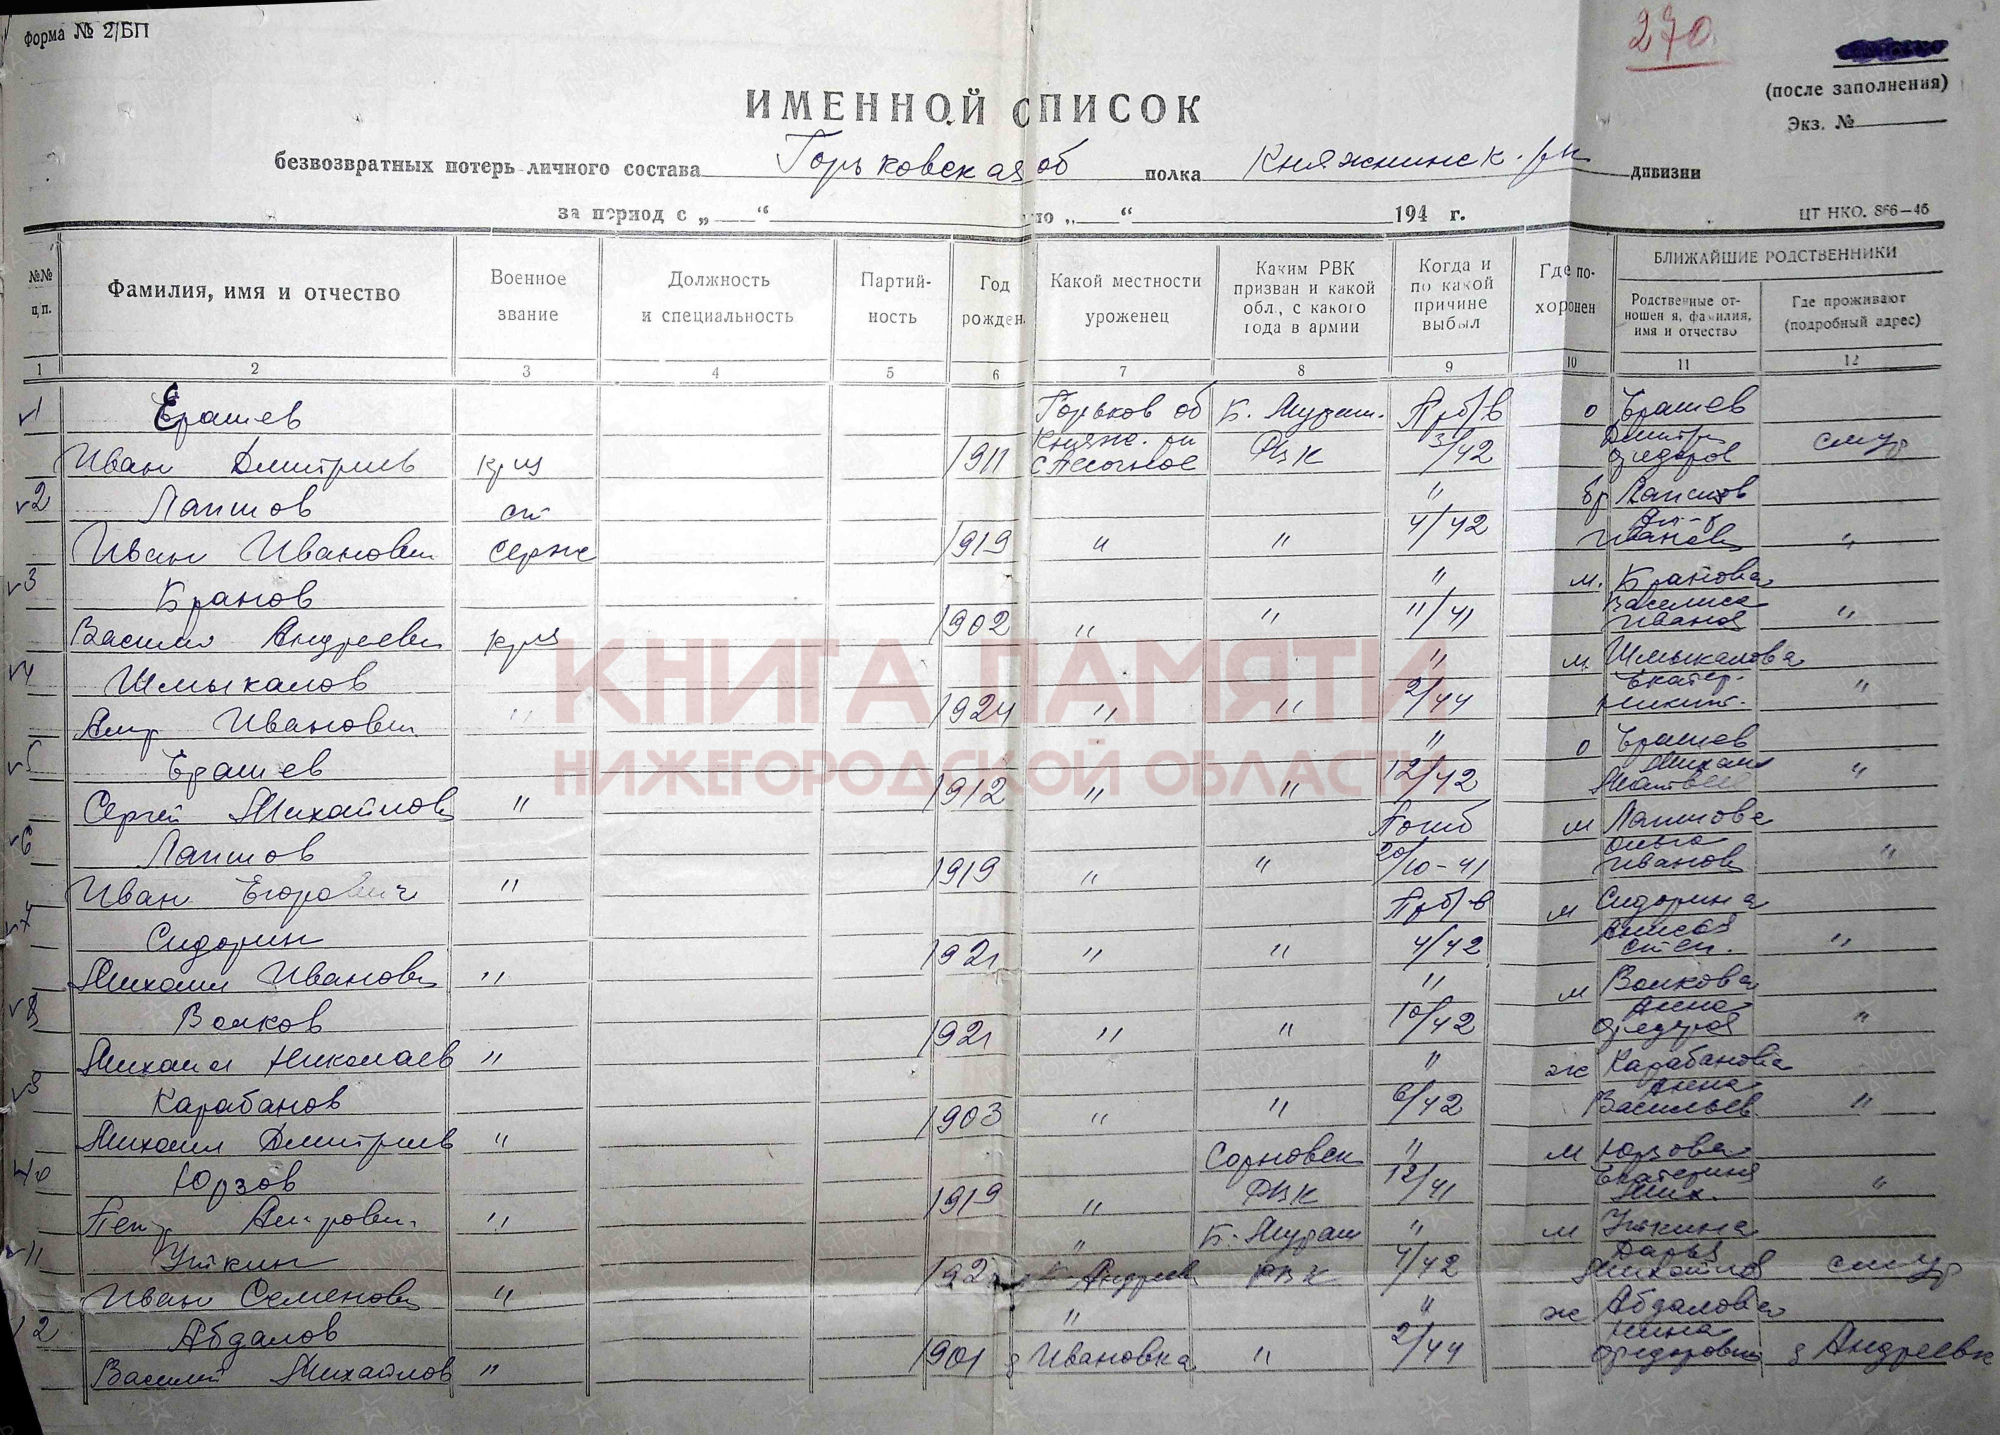 Форма № 2/БП
270
(после заполнения)
Экз. №
ИМЕННОЙ СПИСОК
безвозвратных потерь личного состава Горьковская об полка Княжнинск. рн дивизии
за период с „ “ по „ “ 194 г.
ЦТ НКО. 866—46
№№ п/п.
Фамилия, имя и отчество
Военное звание
Должность и специальность
Партийность
Год рожден.
Какой местности уроженец
Каким РВК призван и какой обл., с какого года в армии
Когда и по какой причине выбыл
Где похоронен
БЛИЖАЙШИЕ РОДСТВЕННИКИ
Родственные отношения, фамилия, имя и отчество
Где проживают (подробный адрес)
1 2 3 4 5 6 7 8 9 10 11 12
1 Ерашев Горьков об Б. Мураш. Прб/в о Ерашев
Иван Дмитриев крц 1911 Княж. рн с Песочное РВК 3/42 Дмитр Федоров
2 Лапшов ст " бр Лапшов
Иван Иванович серж 1919 " " 4/42 Иванов "
3 Кранов " м. Кранова
Василий Андреевич крц 1902 " " 11/41 Василиса Иванов "
4 Шмыкалов " м Шмыкалова
Иванович " 1924 " " 2/44 Екатер. Никит. "
5 Ерашев " о Ерашев
Сергей Михайлов " 1912 " " 12/42 Михаил Матвее "
6 Лапшов Погиб м Лапшова
Иван Егорович " 1919 " " 20/10-41 Ольга Иванов "
7 Сидорин Прб/в м Сидорина
Михаил Иванович " 1921 " " 4/42 Анисья Степ. "
8 Волков " м Волкова
Михаил Николаев " 1921 " " 10/42 Анна Федоров "
9 Карабанов " ж Карабанова
Михаил Дмитриев " 1903 " " 6/42 Анна Васильев "
10 Юрзов Сормовск " м Юрзова
Петр " 1919 " РВК 12/41 Екатерина Мих. "
11 Уткин " Б. Мураш " м Уткина
Иван Семенович " 192 Андреев РВК 4/42 Дарья Михайлов
12 Абдалов " " ж Абдалова
Василий Михайлов " 1901 д Ивановка " 2/44 Нина Федоровна д Андреевк
КНИГА ПАМЯТИ
НИЖЕГОРОДСКОЙ ОБЛАСТИ